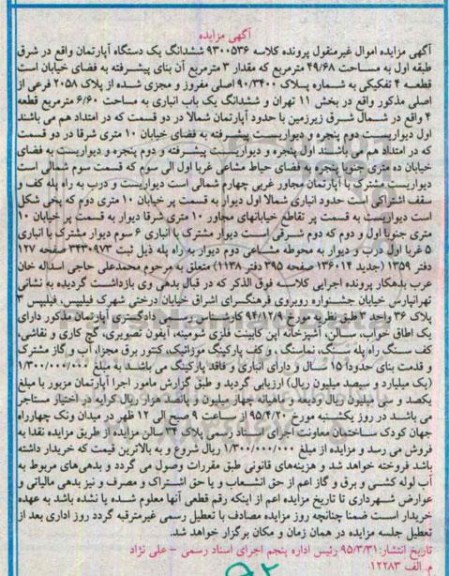 آگهی مزایده
آگهی مزایده اموال غیرمنقول پرونده کلاسه ۹۳۰۰۵۳۶ ششدانگ یک دستگاه آپارتمان واقع در شرق
طبقه اول به مساحت ۴۹/۶۸ مترمربع که مقدار ۳ مترمربع آن بنای پیشرفته به فضای خیابان است
قطعه ۴ تفکیکی به شماره پلاک ۹۰/۳۴۰۰ اصلی مفروز و مجزی شده از پلاک ۲۰۵۸ فرعی از
اصلی مذکور واقع در بخش ۱۱ تهران و ششدانگ یک باب انباری به مساحت ۶/۶۰ مترمربع قطعه
۴ واقع در شمال شرق زیرزمین با حدود آپارتمان شمالا در دو قسمت که در امتداد هم می باشند
اول دیواریست دوم پنجره و دیواریست پیشرفته به فضای خیابان ۱۰ متری شرقا در دو قسمت
که در امتداد هم می باشند اول پنجره و دیواریست پیشرفته و دوم پنجره و دیواریست به فضای
خیابان ده متری جنوبا پنجره به فضای حیاط مشاعی غربا اول الی سوم که قسمت سوم شمالی است
دیواریست مشترک با آپارتمان مجاور غربی چهارم شمالی است دیواریست و درب به راه پله کف و
سقف اشتراکی است حدود انباری شمالا اول دیوار به قسمت پر خیابان ۱۰ متری دوم که پخی شکل
است دیواریست به قسمت پر تقاطع خیابانهای مجاور ۱۰ متری شرقا دیوار به قسمت پر خیابان ۱۰
متری جنوبا اول و دوم که دوم شرقی است دیوار مشترک با انباری ۶ سوم دیوار مشترک با انباری
۵ غربا اول درب و دیوار به محوطه مشاعی دوم دیوار به راه پله ذیل ثبت ۳۴۳۰۹۷۳ صفحه ۱۲۷
دفتر ۱۳۵۹ (جدید ۱۳۶۰۱۲ صفحه ۳۹۵ دفتر ۱۱۳۸) متعلق به مرحوم محمدعلی حاجی اسداله خان
عرب بدهکار پرونده اجرایی کلاسه فوق الذکر که در قبال بدهی وی بازداشت گردیده به نشانی
تهرانپارس خیابان جشنواره روبروی فرهنگسرای اشراق خیابان درختی شهرک فیلیپس، فیلیپس ۳
پلاک ۳۶ واحد ۳ طبق نظریه مورخ ۹۴/۱۲/۹ کارشناس رسمی دادگستری آپارتمان مذکور دارای
یک اطاق خواب، سالن، آشپزخانه اپن کابینت فلزی شومینه، آیفون تصویری، گچ کاری و نقاشی،
کف سنگ راه پله سنگ، نماسنگ. وکف پارکینگ موزائیک، کنتور برق مجزا، آب و گاز مشترک
و قدمت بنای حدوداً ۱۵ سال و دارای انباری و فاقد پارکینگ می باشند به مبلغ ۱/۳۰۰/۰۰۰/۰۰۰
(یک میلیارد و سیصد میلیون ریال) ارزیابی گردید و طبق گزارش مامور اجرا آپارتمان مزبور با مبلغ
یکصد و سی میلیون ریال ودیعه و ماهیانه چهار میلیون و پانصد هزار ریال کرایه در اختیار مستاجر
می باشد. در روز یکشنبه مورخ ۹۵/۴/۲۰ از ساعت ۹ صبح الی ۱۲ ظهر در میدان ونک چهارراه
جهان کودک ساختمان معاونت اجرای اسناد رسمی پلاک ۳۴ سالن مزایده از طریق مزایده نقدا به
فروش می رسد و مزایده از مبلغ ۱/۳۰۰/۰۰۰/۰۰۰ ریال شروع و به بالاترین قیمت که خریدار داشته
باشد فروخته خواهد شد و هزینه‌های قانونی طبق مقررات وصول می گردد و بدهی‌های مربوط به
آب لوله کشی و برق و گاز اعم از حق انشعاب و یا حق اشتراک و مصرف و نیز بدهی مالیاتی و
عوارض شهرداری تا تاریخ مزایده اعم از اینکه رقم قطعی آنها معلوم شده یا نشده باشد به عهده
خریدار است ضمنا چنانچه روز مزایده مصادف با تعطیل رسمی غیرمترقبه گردد روز اداری بعد از
تعطیل جلسه مزایده در همان زمان و مکان برگزار خواهد شد.
تاریخ انتشار: ۹۵/۳/۳۱ رئیس اداره پنجم اجرای اسناد رسمی - علی نژاد
م. الف ۱۲۲۸۳